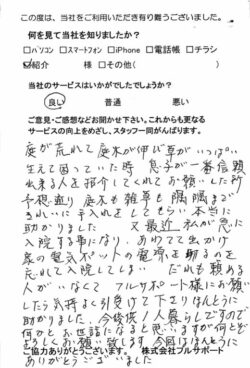 この度は、当社をご利用いただき有り難うございました。
何を見て当社を知りましたか？
□パソコン □スマートフォン □iPhone □電話帳 □チラシ
☑紹介 様 □その他( )
当社のサービスはいかがでしたでしょうか？
良い 普通 悪い
ご意見・ご感想などお聞かせ下さい。これからも更なる
サービスの向上をめざし、スタッフ一同がんばります。
庭が荒れて庭木が伸び草がいっぱい
生えて困っていた時 息子が一番信頼
出来る人を紹介してくれてお願いした所
予想通り庭木も雑草も隅隅まで
きれいに手入れをしてもらい本当に
助かりました 又最近 私が急に
入院する事になり、あわてて出かけ
家の電気ポットの電源を切るのを
忘れて入院してしまい だれも頼める
人がいなくて フルサポート様にお願い
したら気持よく引受けて下さりほんとうに
助かりました、今後供1人暮らしですので
何かとお世話になると思いますが何とぞ
よろしくお願い致します 今回はほんとうに
ご協力ありがとうございます。 株式会社フルサポート
ありがとうございました